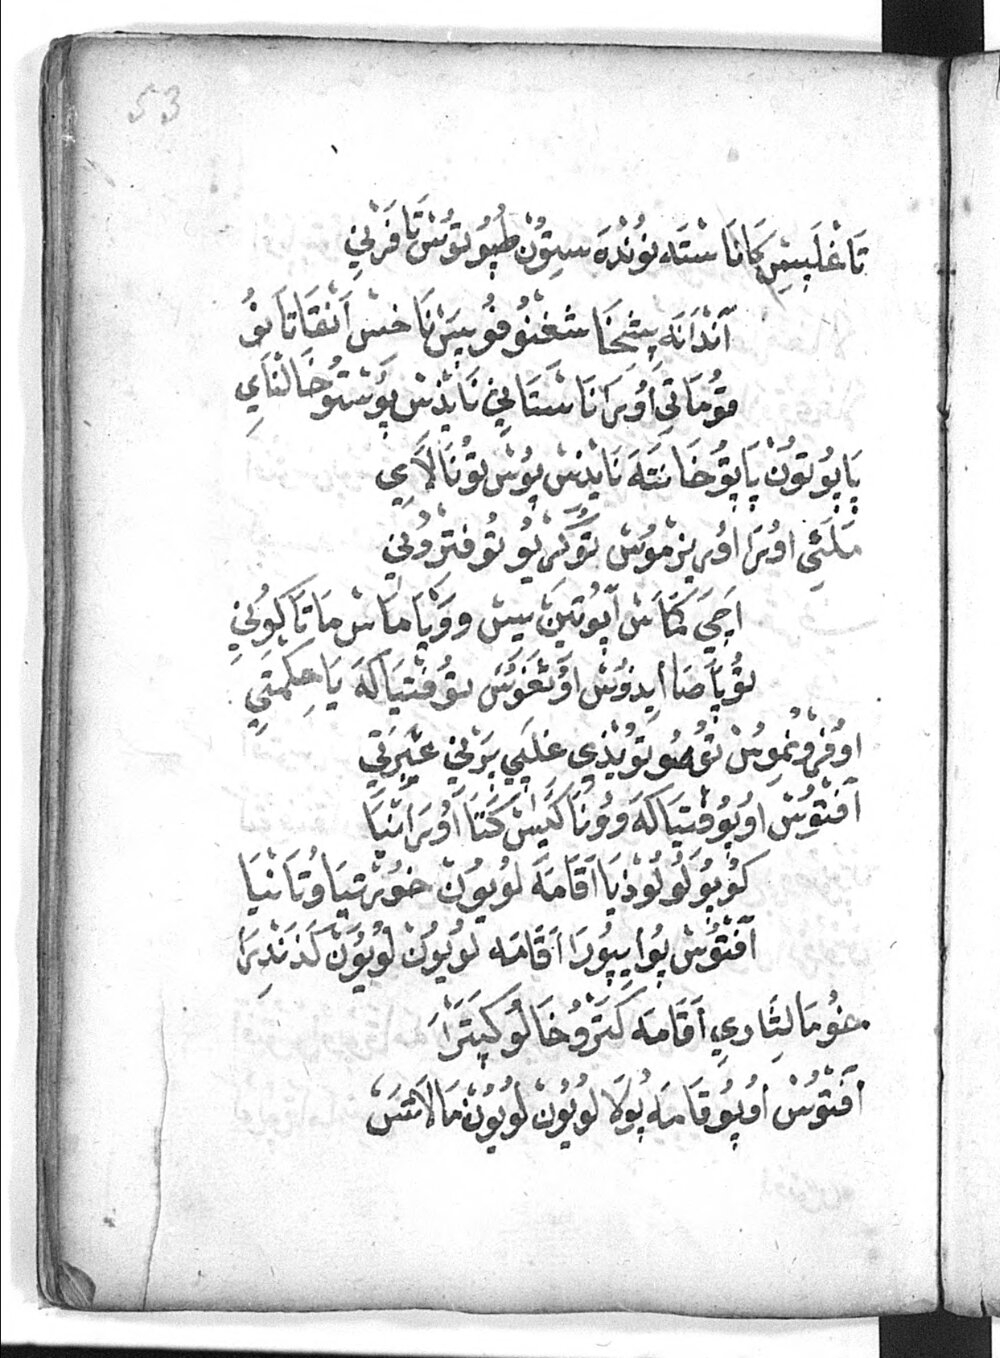 53
تَا غْلَپِسْ كَانَا سْتَه نوُنْدَهَ سِتوُنْ طُپوُ توُسْ تَا فَرْنِي
آنْدَانَه پِسْخَا شغْنوُفوُ بِيسْ نَا خسْ آنْقَا تَا نوُ
قوُمَاتِي اوُرَانَا سْتَاپِي نَا يْدْسْ پوُسْتوُ خَالْنَايِ
پَاپوُ توُنْ پَاپوُ خَاسَتَه نَا يْدِسْ پوُسْ توُنَا لَايِ
مَلَشِي اوُرَا اوُرِيزْموُسْ توُ كِرْيوُ توُ فِتْروُنِي
اَچِي كَاسْ آپوُتِينْ سِيسْ وَوَپَامَاسْ مَاتَا كِوُنِي
توُ پَاصَا اِيدوُسْ اوُتَغَوُسْ توُ فْتِيَاكَه يَا حِكْمَتِي
اوُ فْروُنِموُسْ توُ صوُ توُ يْذِي غْلَپِي بَرْنِي عِبْرَتِي
آفْتوُسْ اوُپوُ فْتِيَاكَه وُوُنَا كَپَسْ كَتَا آوُرَانْيَا
كوُپوُ لوُلوُذْيَا اَقَامَه لوُيوُنْ خوُرْتِيَا وُتَانْيَا
آفْتوُسْ پوُ اِيپوُرَا اَقَامَه لوُيوُنْ لوُيوُنْ كَذَنْدِرَا
خوُمَا لِثَارِي اَقَامَه كَتْروُخَالوُ كِپَتْرَا
آفْتوُسْ اوُپوُ قَامَه پوُلَا لوُيوُنْ لوُيوُنْ مَالَاسَسْ